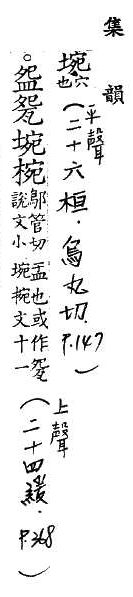 集韻
塸穴也(平聲二十六桓．烏丸切．P.147)
。盌㼝埦椀鄔管切說文小盂也或作㼝埦椀文十一(上聲二十四緩．P.368)